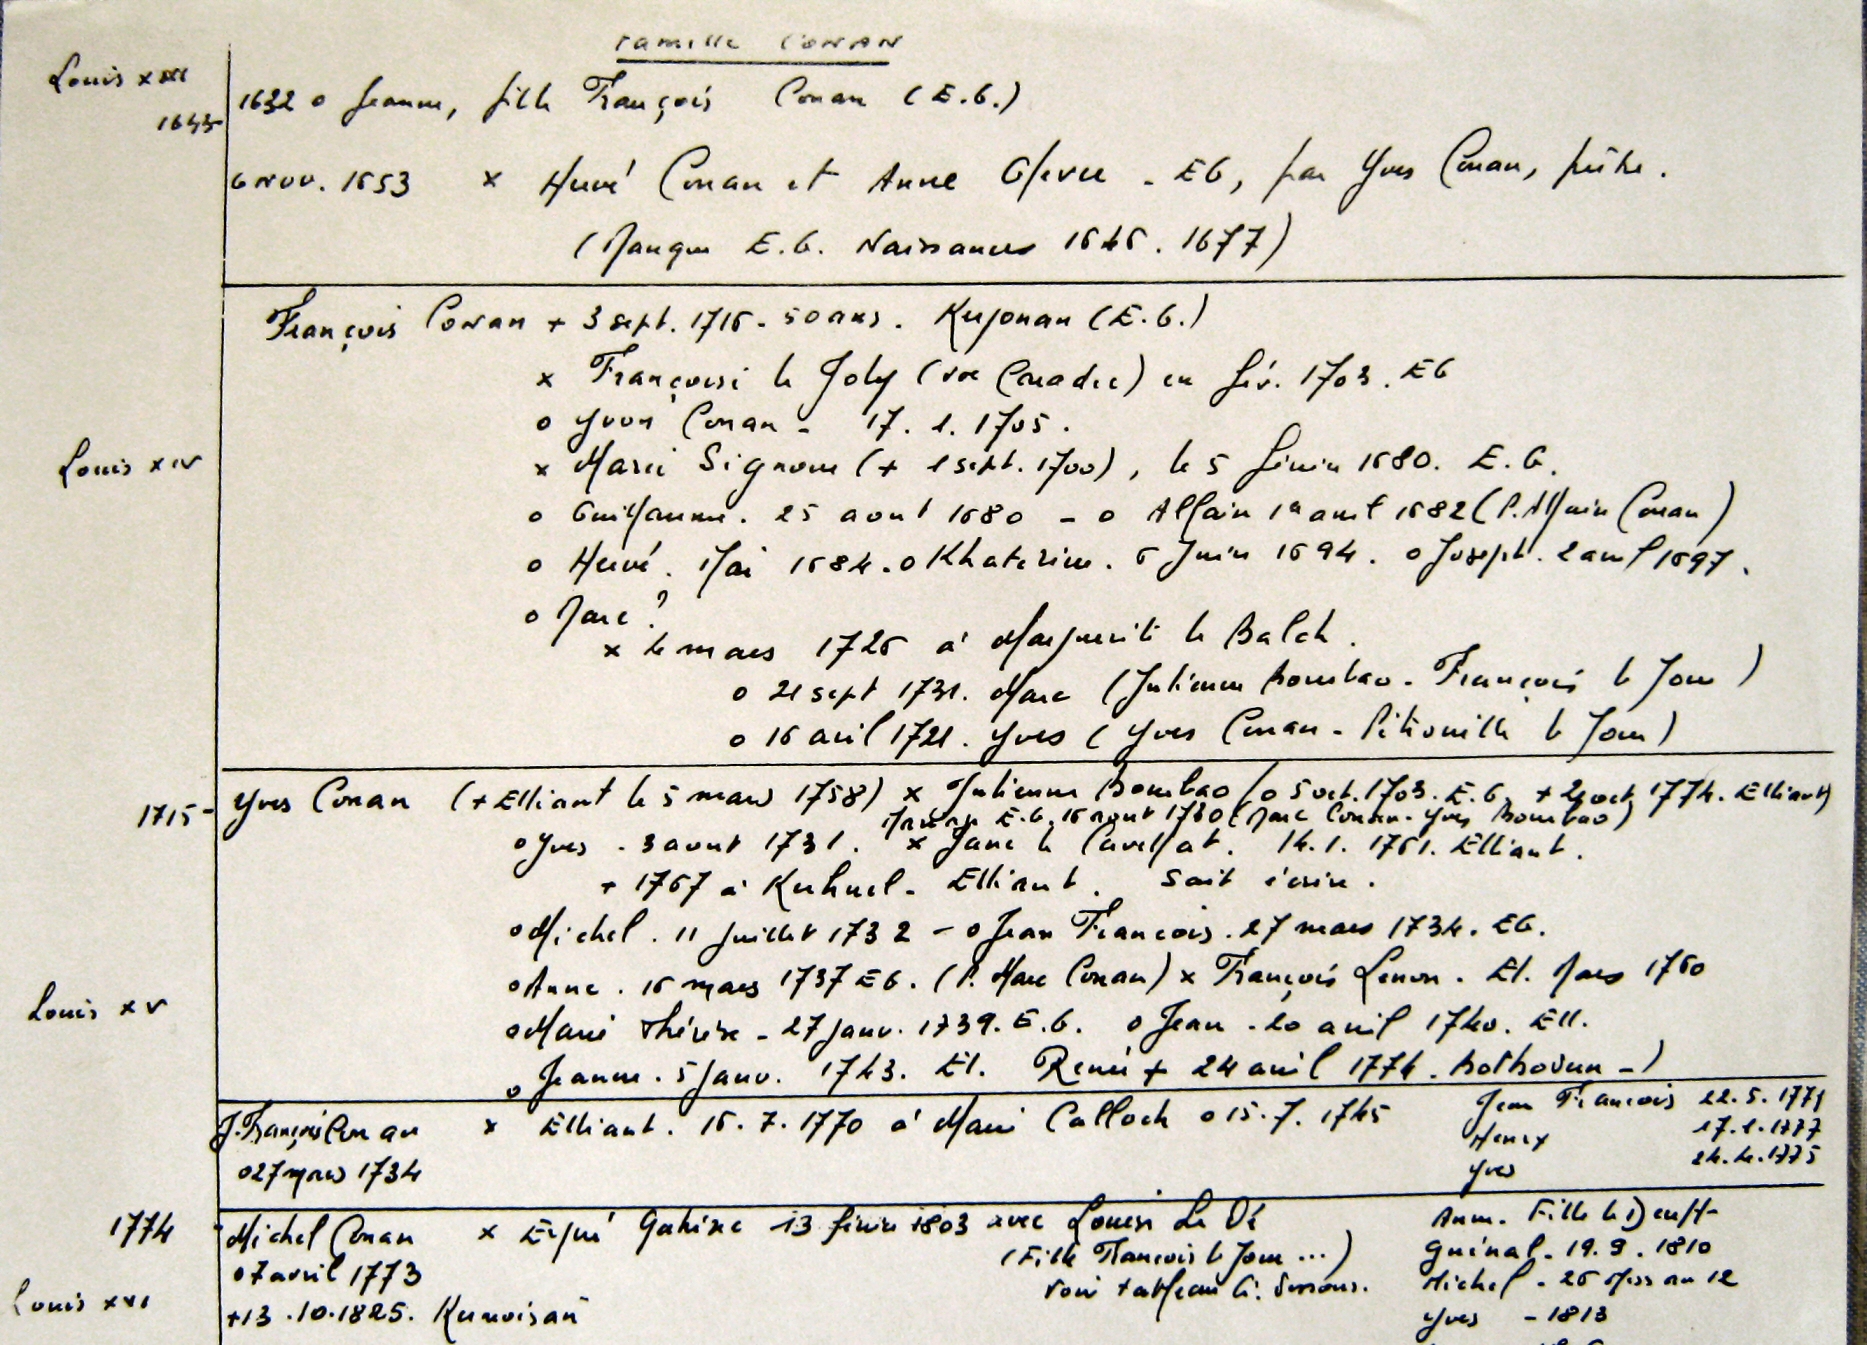 Famille CONAN
Louis XIII
1643
1632 o Jeanne, fille François Conan (E.G.)
6 Nov. 1653 x Hervé Conan et Anne - EG, par Yves Conan, prêtre.
(Manque E.G. Naissances 1646. 1677)
François Conan + 3 sept. 1716 - 50 ans. Kerjonan (E.G.)
x Françoise le Joly (vve Caradec) en fév. 1703. EG
o Yvon Conan - 17. 1. 1705.
Louis XIV
x Marie Signour (+ 1 sept. 1700), le 5 février 1680. E.G.
o Guillaume. 25 aout 1680 - o Allain 1er avril 1682 (P. Allain Conan)
o Hervé. Mai 1684. o Khaterine. 6 Juin 1694. o Joseph. 2 avril 1697.
o Marc?
x 4 mars 1726 à Marguerite le Balch.
o 21 sept 1731. Marc (Julienne Bourbao - François le Jour)
o 16 avril 1721. Yves (Yves Conan - Pétronille le Jour)
1715-
Yves Conan (+ Elliant le 5 mars 1758) x Julienne Bourbao (o 5 oct. 1703. E.G. + 2 oct 1774. Elliant)
Mariage E.G. 16 aout 1730 (Marc Conan - Yves Bourbao)
o Yves. 3 aout 1731. x Jane le Cavellat. 14.1.1761. Elliant.
+ 1767 à - Elliant. Sait écrire.
o Michel. 11 juillet 1732 - o Jean François. 27 mars 1734. EG.
o Anne. 16 mars 1737 EG. (P. Marc Conan) x François Lennon. El. Mars 1760
Louis XV
o Marie Thérèse - 27 janv. 1739. E.G. o Jean - 20 avril 1740. Ell.
o Jeanne. 5 janv. 1743. El. René + 24 avril 1774. -)
J. François Conan x Elliant. 16. 7. 1770 à Marie Calloch o 15. 7. 1745
o 27 mars 1734
Jean François 22.5.1771
Henry 17.1.1777
Yves 24.4.1775
1774
Michel Conan x Ergué Gabéric 13 février 1803 avec Louise Le Dé
o 7 avril 1773 (Fille François le Jour ...)
+ 13.10.1825. voir tableau
Louis XVI
Ann. Fille
Guénal - 19. 9. 1810
Michel - 26 Mess an 12
Yves - 1813